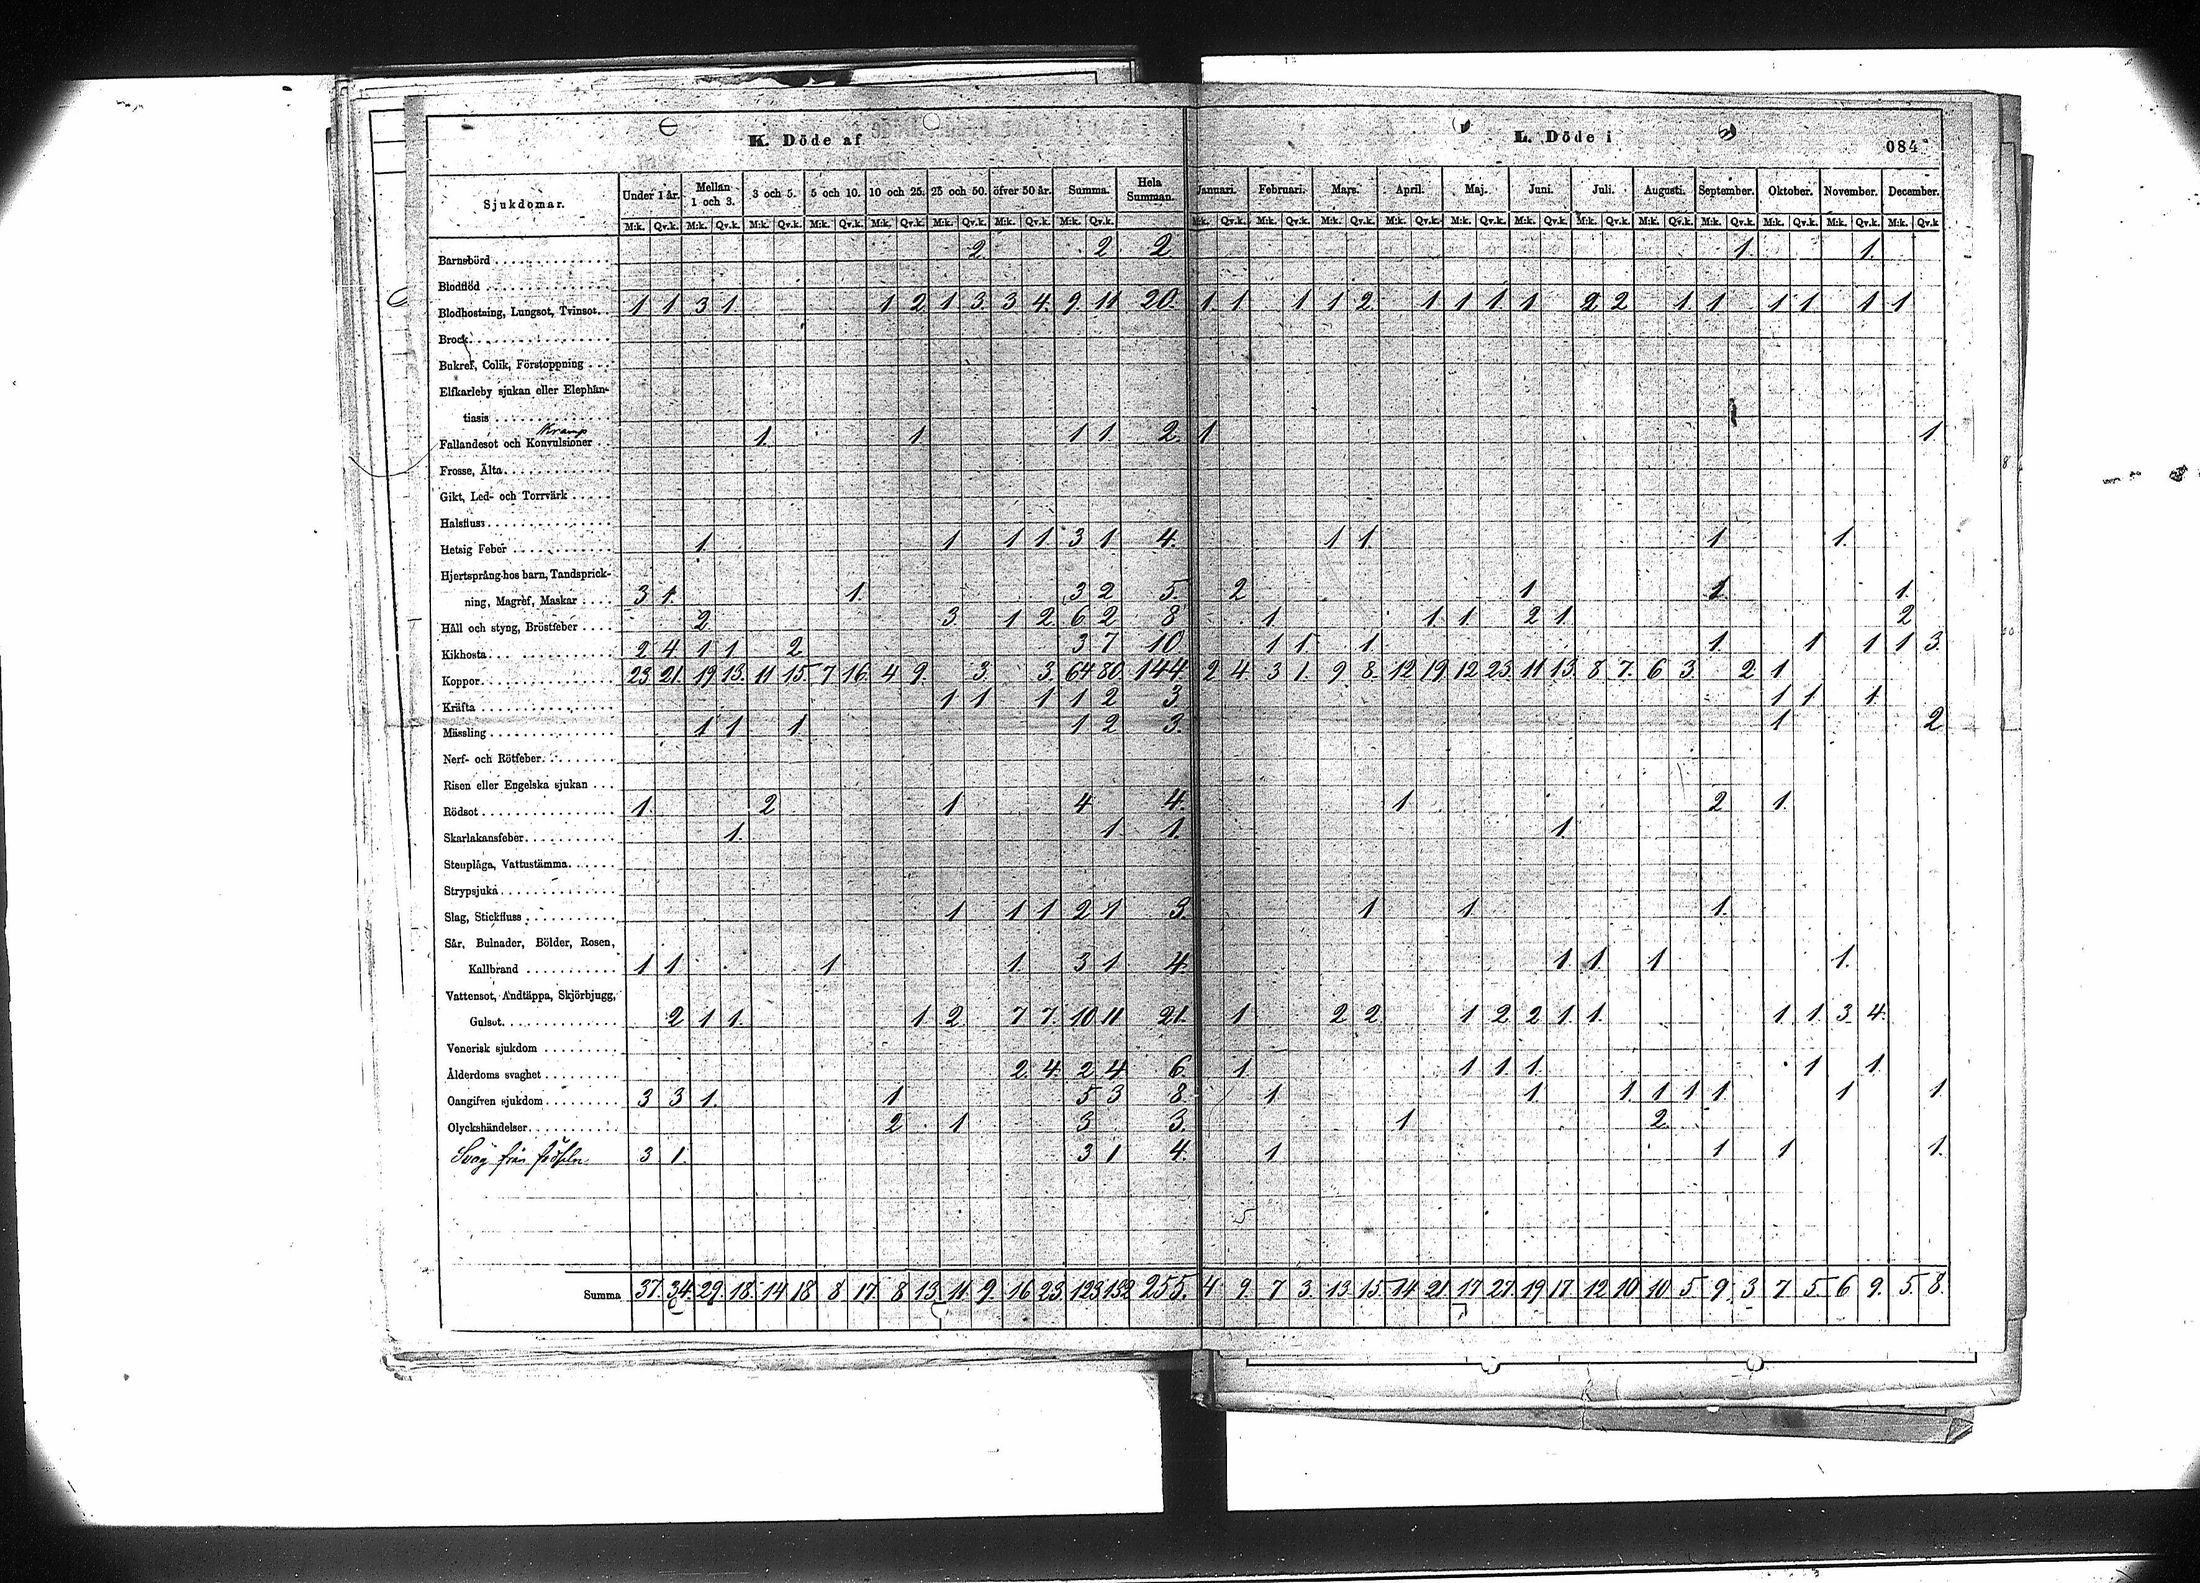 K. Döde af
L. Döde i
084
Sjukdomar.
Under 1 år. Mellan 1 och 3. 3 och 5. 5 och 10. 10 och 25. 25 och 50. öfver 50 år. Summa. Hela Summan. Januari. Februari. Mars. April. Maj. Juni. Juli. Augusti. September. Oktober. November. December.
M:k. Qv.k. M:k. Qv.k. M:k. Qv.k. M:k. Qv.k. M:k. Qv.k. M:k. Qv.k. M:k. Qv.k. M:k. Qv.k. M:k. Qv.k. M:k. Qv.k. M:k. Qv.k. M:k. Qv.k. M:k. Qv.k. M:k. Qv.k. M:k. Qv.k. M:k. Qv.k. M:k. Qv.k. M:k. Qv.k. M:k. Qv.k. M:k. Qv.k
Barnsbörd 2. 2. 2. 1. 1.
Blodflöd
Blodhostning, Lungsot, Tvinsot. 1 1 3 1 1 2 1 3 3 4. 9. 11 20. 1. 1 1 1 2. 1 1 1. 1 2 2 1. 1 1 1 1 1
Brock
Bukref, Colik, Förstoppning
Elfkarleby sjukan eller Elephan-
tiasis
Kramp
Fallandesot och Konvulsioner 1. 1. 1 1. 2. 1 1.
Frosse, Älta
Gikt, Led- och Torrvärk
Halsfluss
Hetsig Feber 1. 1 1 1. 3 1 4. 1 1. 1 1.
Hjertsprång hos barn, Tandsprick-
ning, Magref, Maskar 3 1. 1. 3 2 5. 2 1 1 1.
Håll och styng, Bröstfeber 2. 3. 1 2. 6 2 8 1 1 1 2 1 2
Kikhosta 2 4 1 1 2 3 7 10. 1 1 1 1 1 1 1 3.
Koppor 23 21. 19 13. 11 15. 7 16. 4 9. 3. 3. 64 80. 144. 2 4. 3 1. 9 8. 12 19. 12 23. 11 13. 8 7. 6 3. 2 1
Kräfta 1 1 1 1 2 3. 1 1 1.
Mässling 1 1 1 1 2 3. 1 2
Nerf- och Rötfeber
Risen eller Engelska sjukan
Rödsot 1. 2 1 4 4. 1 2 1.
Skarlakansfeber 1. 1. 1. 1.
Stenplåga, Vattustämma
Strypsjuka
Slag, Stickfluss 1 1 1 2 1 3. 1 1 1.
Sår, Bulnader, Bölder, Rosen,
Kallbrand 1 1 1 1 3 1 4 1 1. 1 1.
Vattensot, Andtäppa, Skjörbjugg,
Gulsot 2 1 1. 1. 2 7 7. 10 11 21. 1 2 2 1 2 2 1. 1. 1 1 3 4.
Venerisk sjukdom
Ålderdoms svaghet 2. 4. 2 4 6. 1 1 1. 1 1 1.
Oangifven sjukdom 3 3 1. 1 5 3 8. 1 1 1 1 1 1 1 1
Olyckshändelser 2. 1 3 3. 1 2.
Svag från födseln 3 1. 3 1 4. 1 1 1 1.
5
Summa 37. 34. 29. 18. 14 18 8 17. 8 13. 11. 9. 16 23. 123 132 255. 4 9. 7 3. 13 15. 14 21. 17 27. 19 17. 12 10 10 5. 9. 3. 7 5. 6 9. 5. 8.